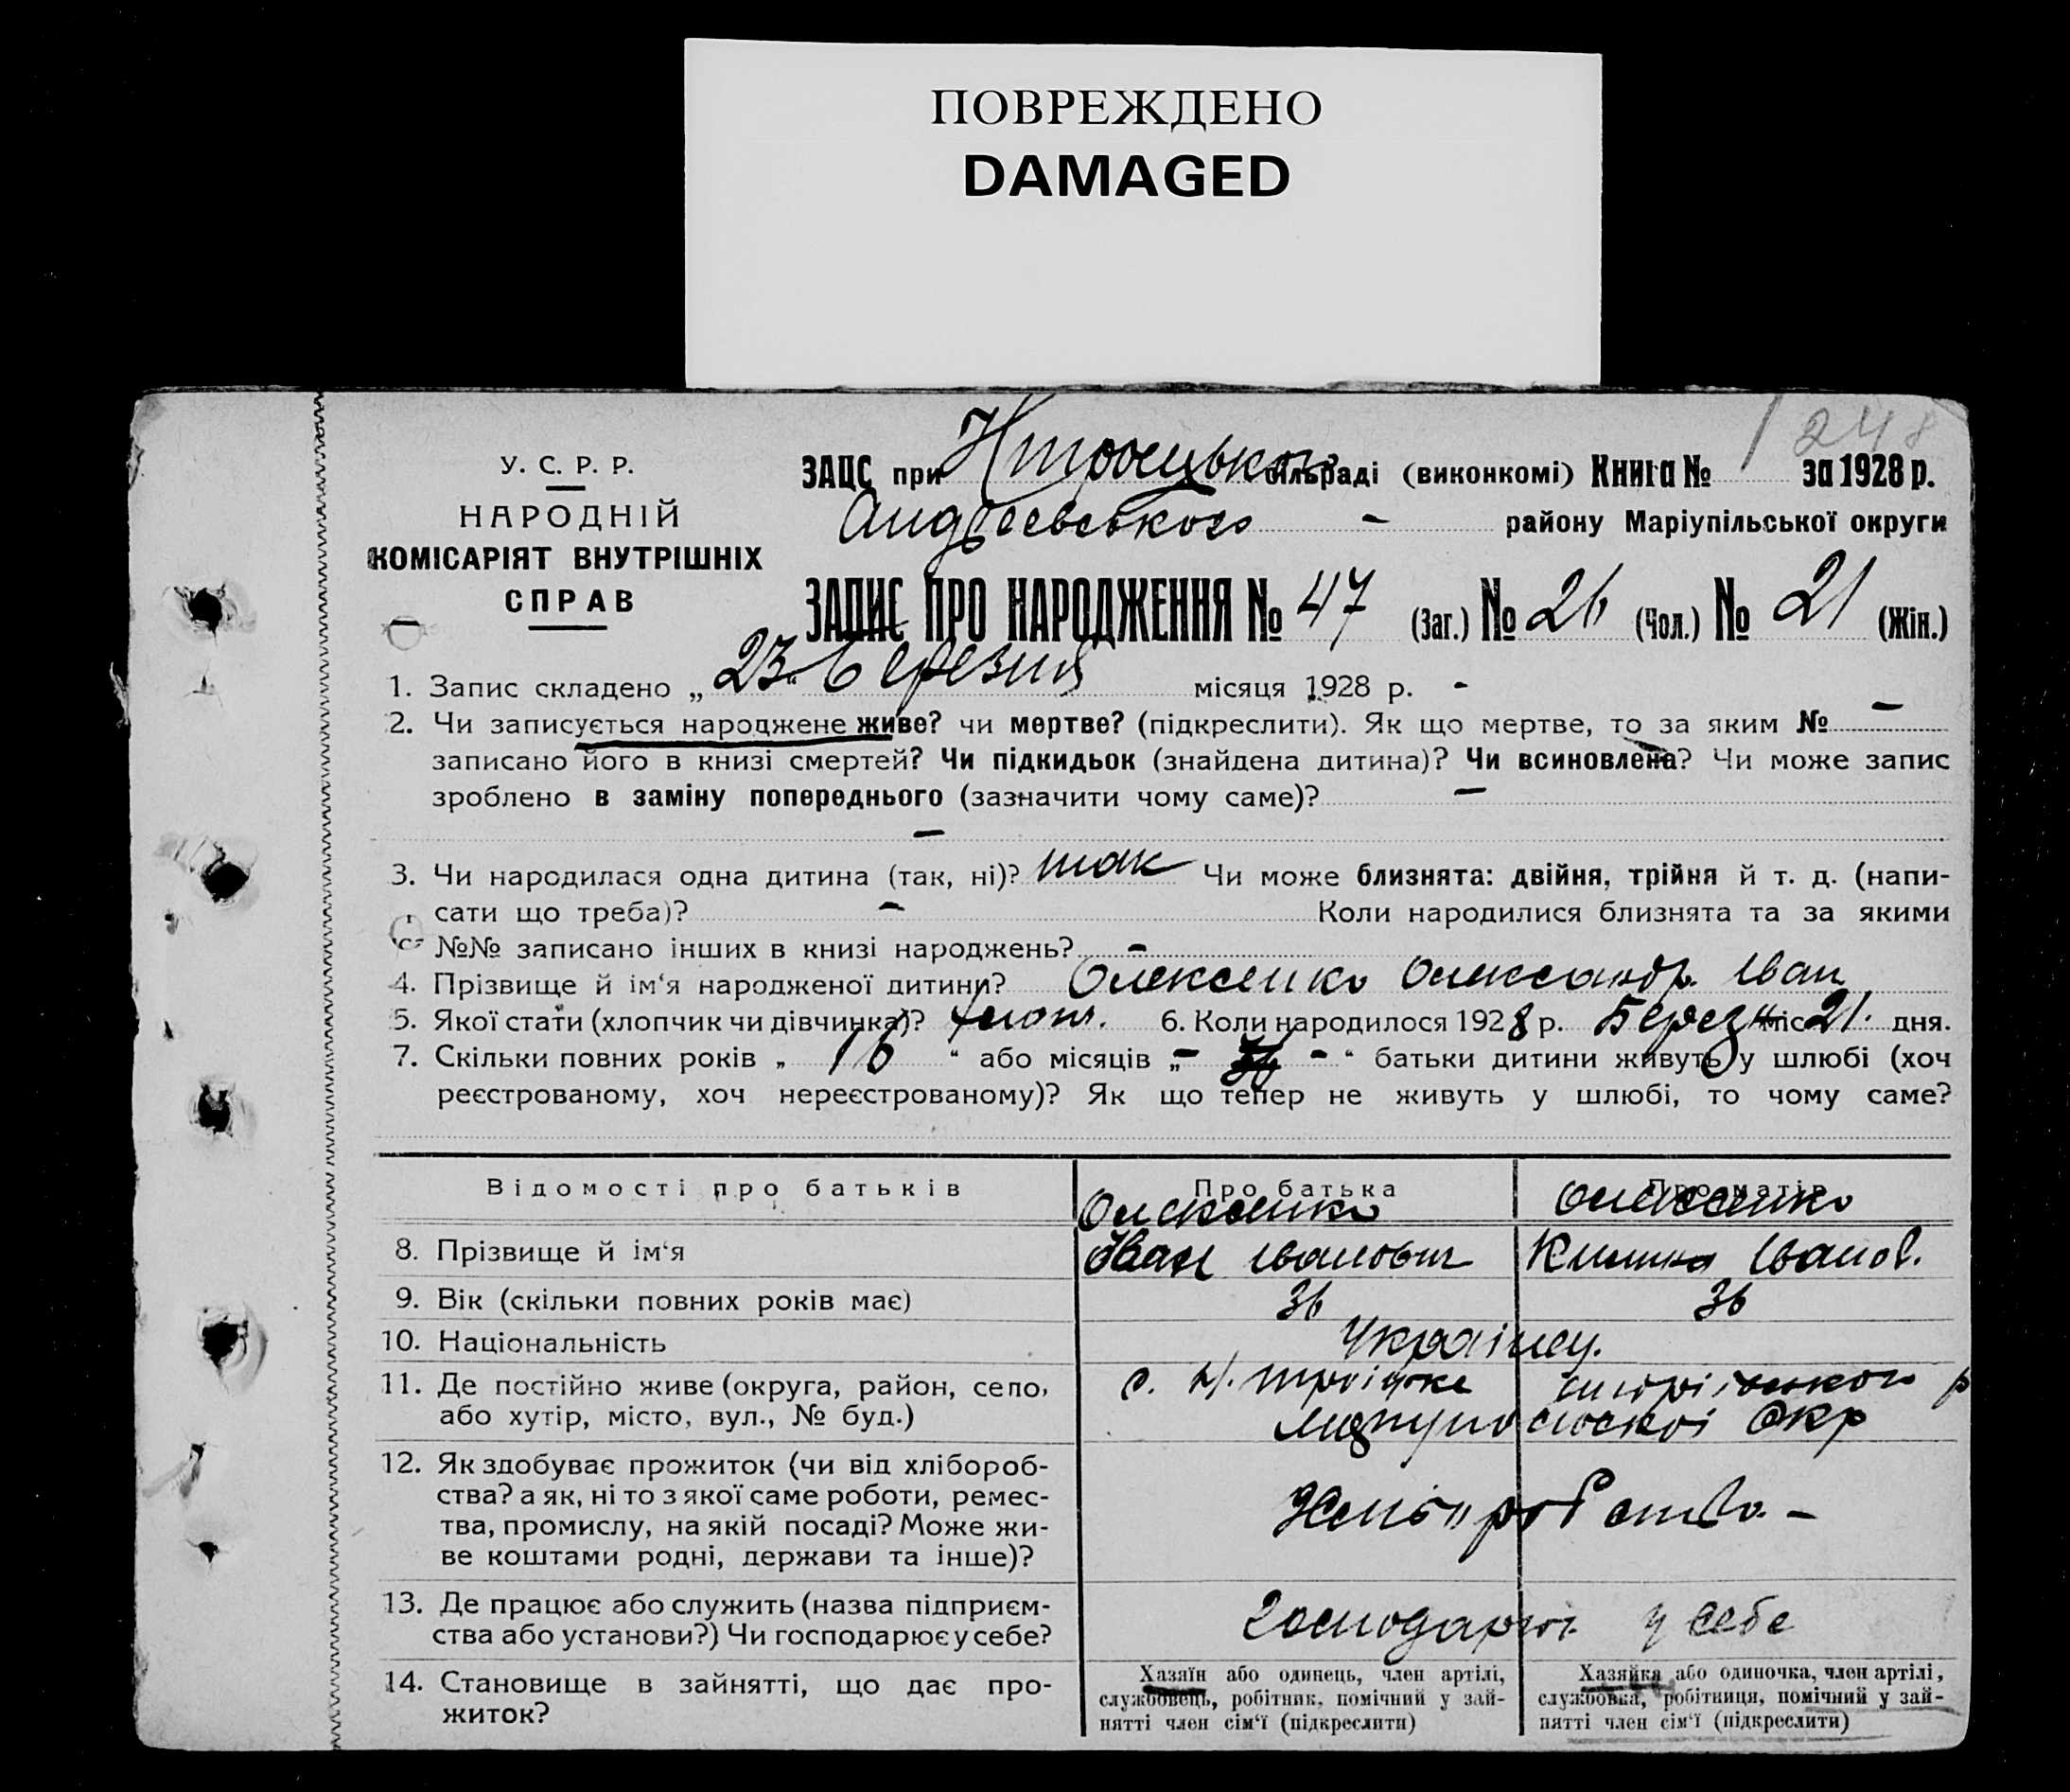 ПОВРЕЖДЕНО
DAMAGED
248
У. С. Р. Р.
НАРОДНІЙ
КОМІСАРІЯТ ВНУТРІШНІХ
СПРАВ
ЗАЦС при Нтроецького сільраді (виконкомі) Книга № за 1928 р.
Андріевського - району Маріупільської округи
ЗАПИС ПРО НАРОДЖЕННЯ № 47 (Заг.) № 26 (Чол.) № 21 (Жін.)
1. Запис складено „ 23 “ березня місяця 1928 р. -
2. Чи записується народжене живе? чи мертве? (підкреслити). Як що мертве, то за яким № -
записано його в книзі смертей? Чи підкидьок (знайдена дитина)? Чи всиновлена? Чи може запис
зроблено в заміну попереднього (зазначити чому саме)? -
-
3. Чи народилася одна дитина (так, ні)? так Чи може близнята: двійня, трійня й т. д. (напи-
сати що треба)? - Коли народилися близнята та за якими
№№ записано інших в книзі народжень? -
4. Прізвище й ім‘я народженої дитини? Олексенко Олександр. Іван
5. Якої стати (хлопчик чи дівчинка)? 6. Коли народилося 1928 р. Березня міс 21. дня.
7. Скільки повних років „ 16 “ або місяців „ - - “ батьки дитини живуть у шлюбі (хоч
реєстрованому, хоч нереєстрованому)? Як що тепер не живуть у шлюбі, то чому саме?
Відомості про батьків Про батька Про матір
Олексенко Олексенко
8. Прізвище й ім‘я Іван Іванович Іванов.
9. Вік (скільки повних років має) 36 36
10. Національність Українц.
11. Де постійно живе (округа, район, село, с. Н. Троіцьке р
або хутір, місто, вул., № буд.) Окр
12. Як здобуває прожиток (чи від хлібороб-
ства? а як, ні то з якої саме роботи, ремес-
тва, промислу, на якій посаді? Може жи-
ве коштами родні, держави та інше)? Хліборобство. -
13. Де працює або служить (назва підприєм-
ства або установи?) Чи господарює у себе? господарює у себе
14. Становище в зайнятті, що дає про-
житок?
Хазяїн або одинець, член артілі,
службовець, робітник, помічний у зай-
нятті член сім‘ї (підкреслити)
Хазяйка або одиночка, член артілі,
службовка, робітниця, помічний у зай-
нятті член сім‘ї (підкреслити)